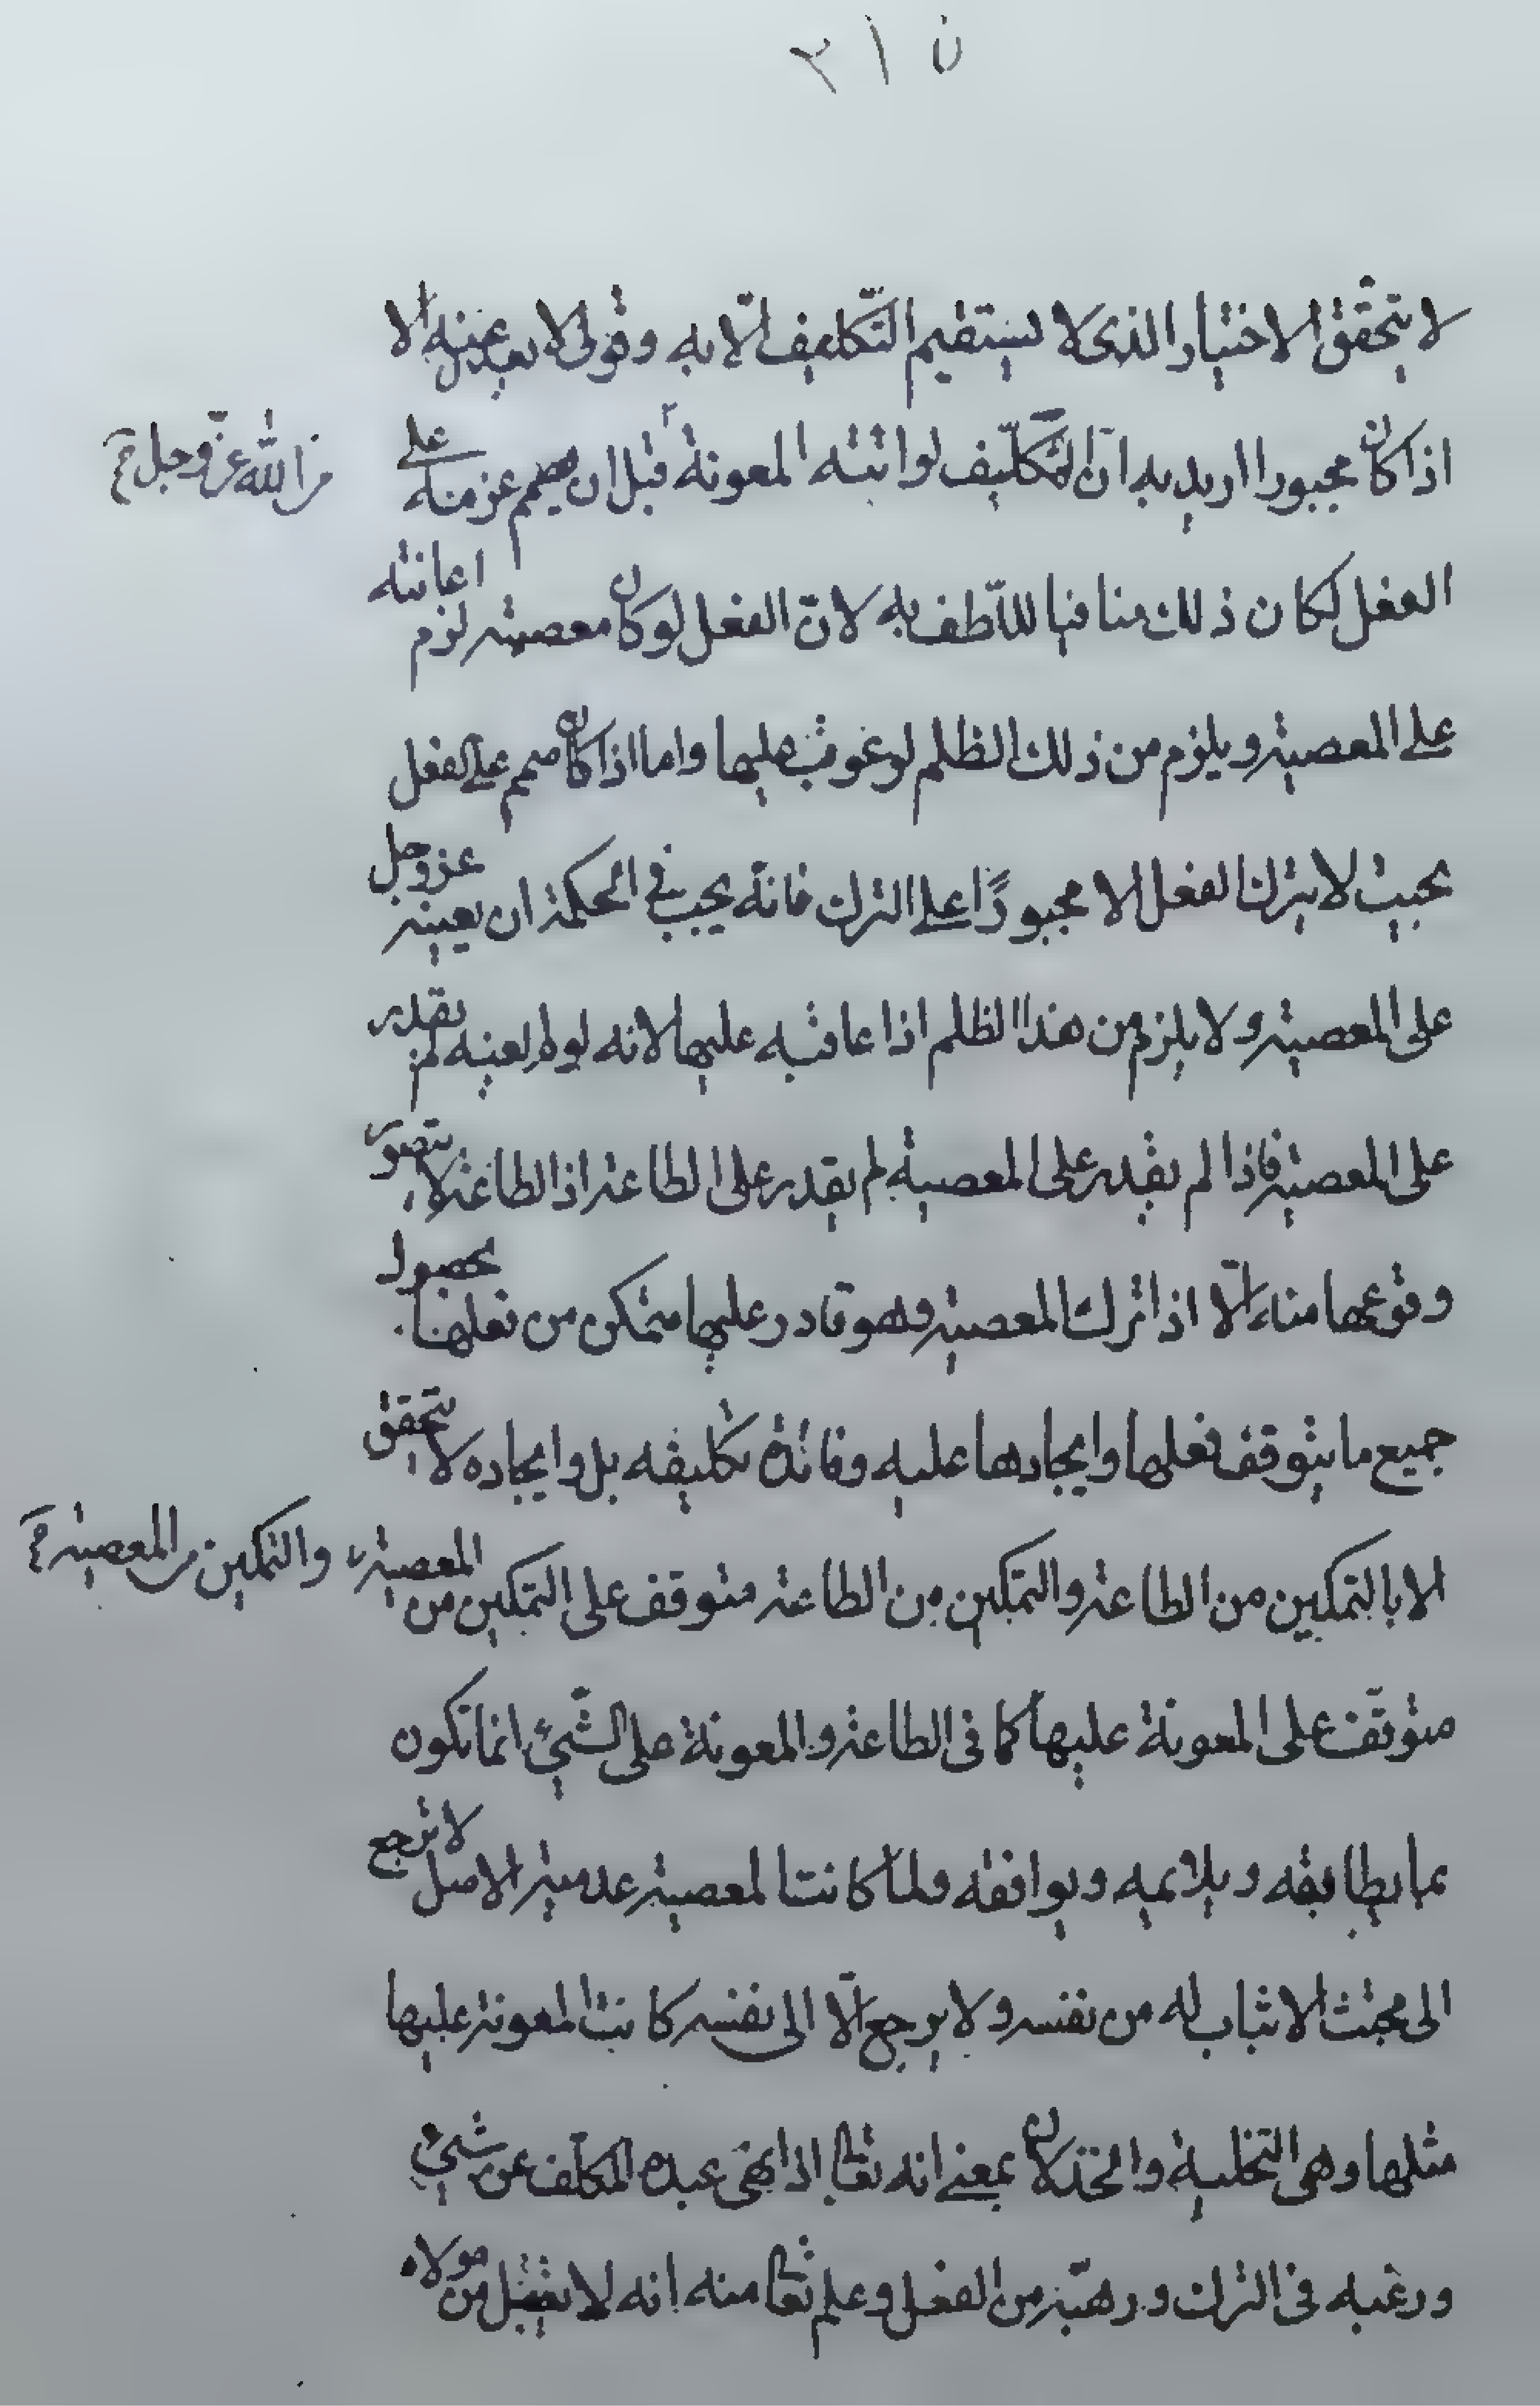 ن ١ ٢
لا يتحقق الاختيار الذى لا يستقيم التّكليف الّا به وقولى لا يعدل عنه الا
اذا كان مجبورا اريد به انّ المكلّف لو اتته المعونة ٢ قبل ان يصمم عزمه على
من الله عزّ وجل صح
الفعل لكان ذلك منافيا للّطف به لانّ الفعل لو كان معصية لزم اعانته
على المعصية ويلزم من ذلك الظلم لو عوقب عليها واما اذا كان صمم على الفعل
بحيث لا يترك الفعل الا مجبورًا على الترك فانّه يجب فى الحكمة ان يعينه عز وجل
على المعصية ولا يلزم من هذا الظلم اذا عاقبه عليها لانه لو لم يعنه لم يقدر
على المعصية فاذا لم يقدر على المعصية لم يقدر على الطاعة اذ الطاعة لا يتصور
وقوعها منه الّا اذا ترك المعصية وهو قادر عليها متمكن من فعلها بحصول
جميع ما يتوقف فعلها وايجادها عليه وفائدة تكليفه بل وايجاده لا يتحقق
الا بالتمكين من الطاعة والتمكين من الطاعة متوقف على التمكين من المعصية
والتمكين من المعصية صح
متوقّف على المعونة عليها كما فى الطاعة والمعونة على الشّئ انما تكون
بما يطابقه ويلايمه ويوافقه ولمّا كانت المعصية عدمية الاصل لا ترجع
الى مجتث لا ثبات له من نفسه ولا يرجع الّا الى نفسه كانت المعونة عليها
مثلها وهى التخلية والخذلان بمعنى انه تعالى اذا نهى عبده المكلّف عن شئ
ورغبه فى الترك ورهّبه من الفعل وعلم تعالى منه انه لا يقبل من مولاه